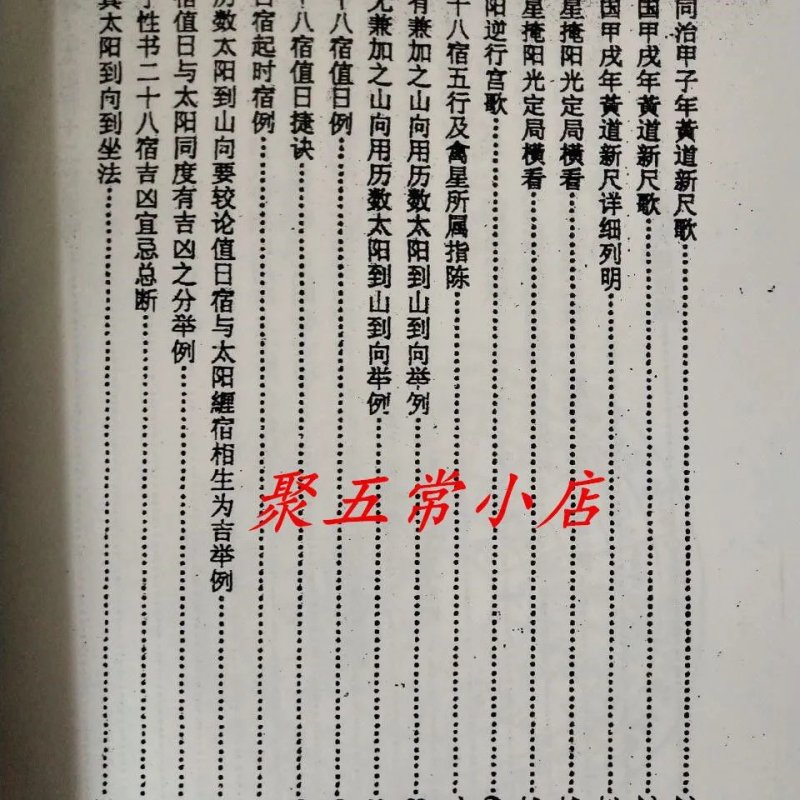 同治甲子年黄道新尺歌
国甲戌年黄道新尺歌
国甲戌年黄道新尺详细列明
星掩阳光定局横看
星掩阳光定局横看
阳逆行宫歌
十八宿五行及禽星所属指陈
有兼加之山向用历数太阳到山到向举例
无兼加之山向用历数太阳到山到向举例
十八宿值日例
十八宿值日捷诀
日宿起时宿例
历数太阳到山向要较论值日宿与太阳纏宿相生为吉举例
宿值日与太阳同度有吉凶之分举例
性书二十八宿吉凶宜忌总断
真太阳到向到坐法
聚五常小店